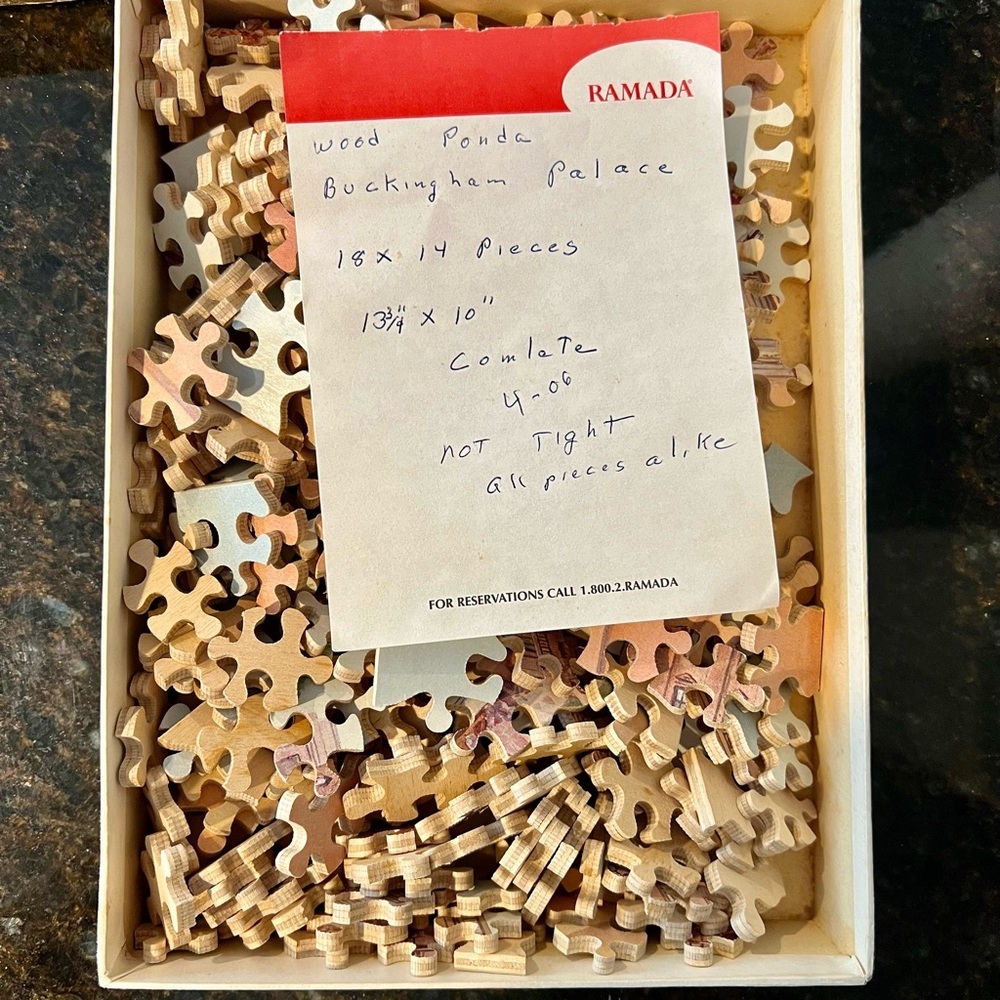 RAMADA®
Wood Ponda
Buckingham Palace
18 x 14 Pieces
13 3/4" x 10"
ComleTe
4-06
noT TighT
all pieces alike
FOR RESERVATIONS CALL 1.800.2.RAMADA